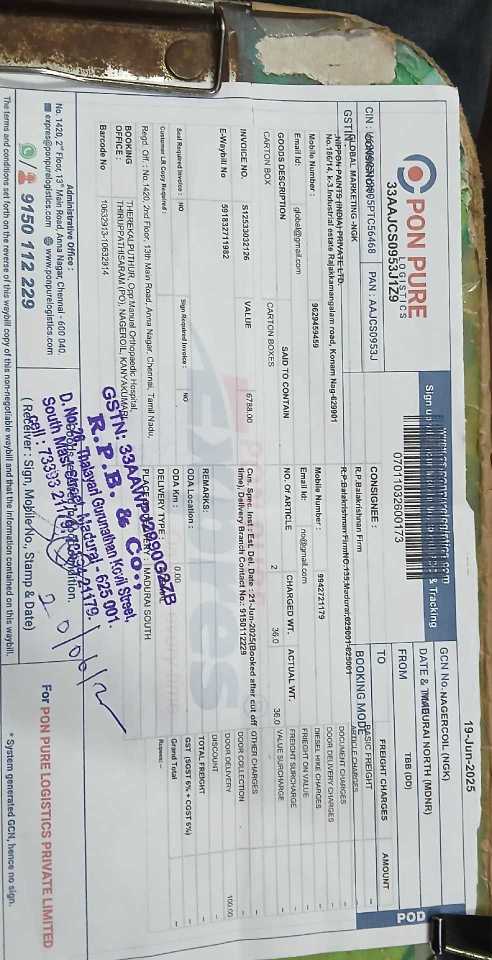 PON PURE
LOGISTICS
33AAJCS0953J1Z9
070011032600173
& Tracking
19-Jun-2025
GCN No.
NAGERCOIL (NGK)
DATE &
MADURAI NORTH (MDNR)
FROM
TBB (DD)
TO
BOOKING MODE
POD
PAN : AAJCS0953J
GSTIN
GLOBAL MARKETING -NGK
NIPPON PAINTS (INDIA) PRIVATE LTD.
No.166/14, k-3.Industrial estate Rajakkamangalam road, Konam Nag-629001
Mobile Number : 9629459459
Email Id: global@gmail.com
CONSIGNEE :
R.P.Balakrishnan Firm
Mobile Number : 9942721179
Email Id: no@gmail.com
GOODS DESCRIPTION
SAID TO CONTAIN
NO. OF ARTICLE
CHARGED WT.
ACTUAL WT.
CARTON BOX
CARTON BOXES
2
36.0
36.0
INVOICE NO.
S12533032126
VALUE
6788.00
Cus. Spec. Inst : Est. Del. Date : 21-Jun-2025(Booked after cut off
time), Delivery Branch Contact No.: 9150112229
E-Waybill No
591832711982
REMARKS:
Said Required Invoice : NO
Sign Required Invoice : NO
ODA Location :
Customer LR Copy Required :
ODA Km : 0.00
DELIVERY TYPE:
Regd. Off. : No.1420, 2nd Floor, 13th Main Road, Anna Nagar, Chennai, Tamil Nadu,
BOOKING
OFFICE :
THEREKALPUTHUR, Opp Manual Orthopaedic Hospital,
THIRUPPATHISARAM (PO), NAGEROIL, KANYAKUMARI
MADURAI SOUTH
Barcode No
10632913-10632914
FREIGHT CHARGES
AMOUNT
BASIC FREIGHT
ARTICLE CHARGES
DOCUMENT CHARGES
DOOR DELIVERY CHARGES
DIESEL HIKE CHARGES
FREIGHT ON VALUE
FREIGHT SURCHARGE
VALUE SURCHARGE
OTHER CHARGES
DOOR COLLECTION
DOOR DELIVERY
100.00
DISCOUNT
TOTAL FREIGHT
GST (SGST 6% + CGST 6%)
Grand Total
Rupees: --
R. P. B. & Co.,
Gurunathan Kovil Street,
Madurai - 625 001.
Administrative Office :
No. 1420, 2nd Floor, 13th Main Road, Anna Nagar, Chennai - 600 040.
expres@ponpurelogistics.com www.ponpurelogistics.com
9150 112 229
( Receiver : Sign, Mobile No., Stamp & Date)
For PON PURE LOGISTICS PRIVATE LIMITED
The terms and conditions set forth on the reverse of this waybill copy of this non-negotiable waybill and that the information contained on this waybill.
* System generated GCN, hence no sign.